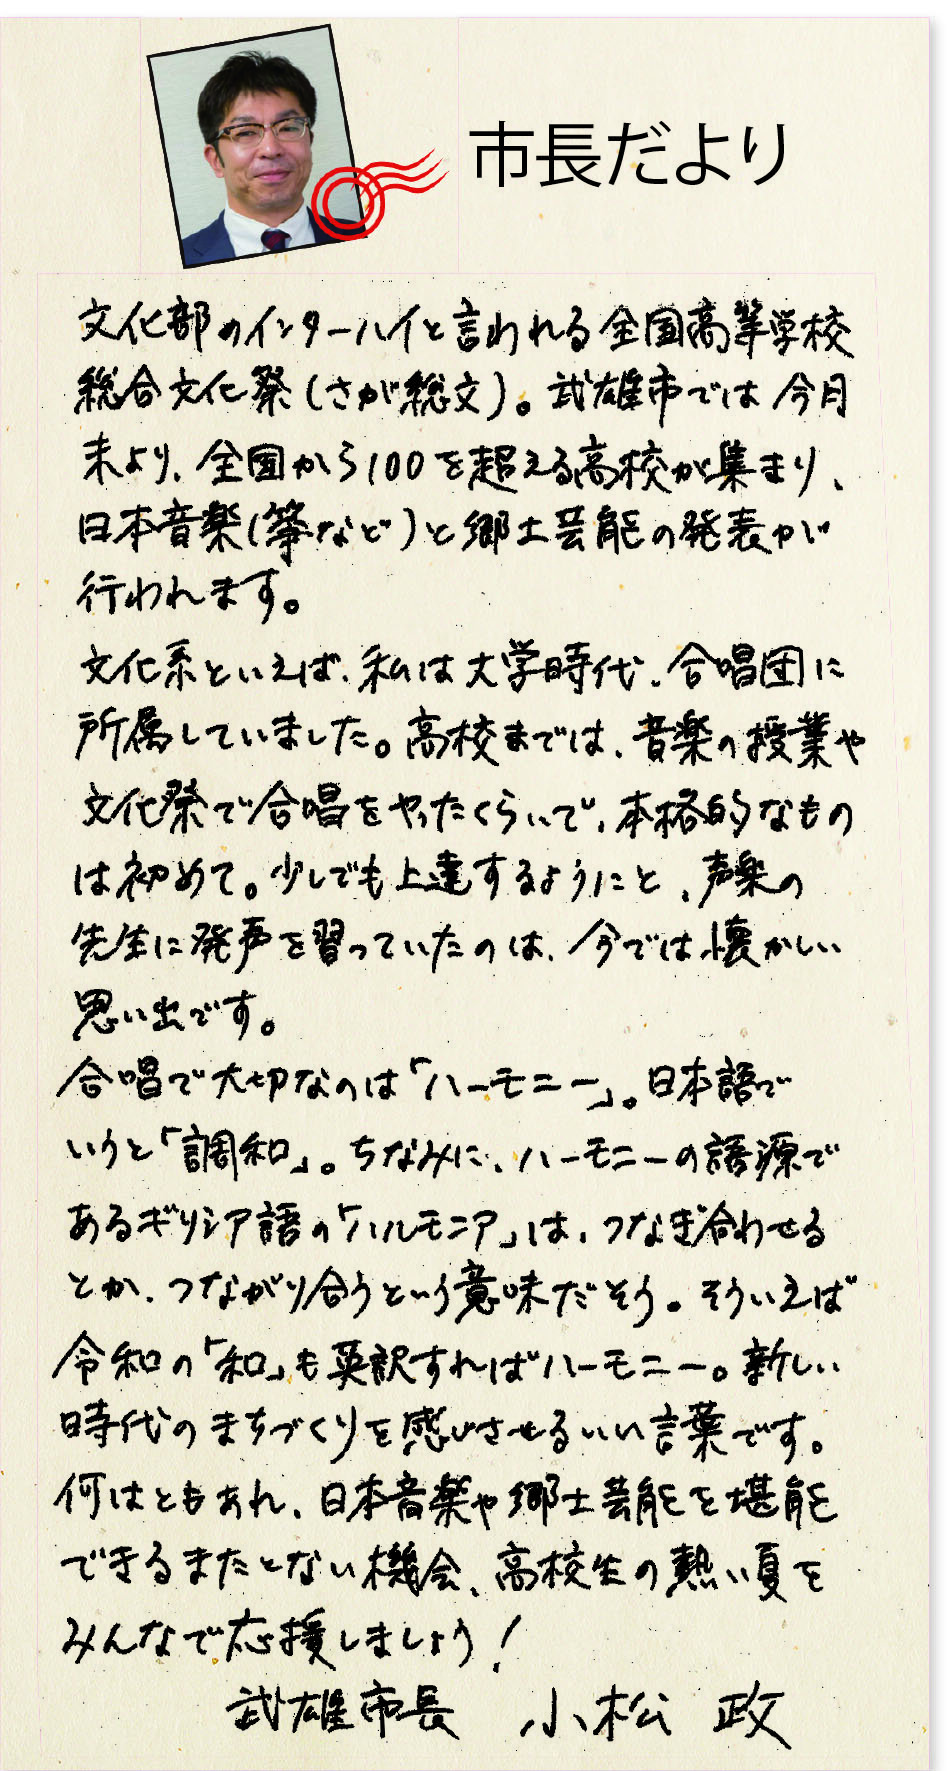 市長だより
文化部のインターハイと言われる全国高等学校
総合文化祭(さが総文)。武雄市では今月
末より、全国から100を超える高校が集まり、
日本音楽(箏など)と郷土芸能の発表が
行われます。
文化系といえば、私は大学時代、合唱団に
所属していました。高校までは、音楽の授業や
文化祭で合唱をやったくらいで、本格的なもの
は初めて。少しでも上達するようにと、声楽の
先生に発声を習っていたのは、今では懐かしい
思い出です。
合唱で大切なのは「ハーモニー」。日本語で
いうと「調和」。ちなみに、ハーモニーの語源で
あるギリシア語の「ハルモニア」は、つなぎ合わせる
とか、つながり合うという意味だそう。そういえば
令和の「和」も英訳すればハーモニー。新しい
時代のまちづくりを感じさせるいい言葉です。
何はともあれ、日本音楽や郷土芸能を堪能
できるまたとない機会、高校生の熱い夏を
みんなで応援しましょう!
武雄市長 小松 政